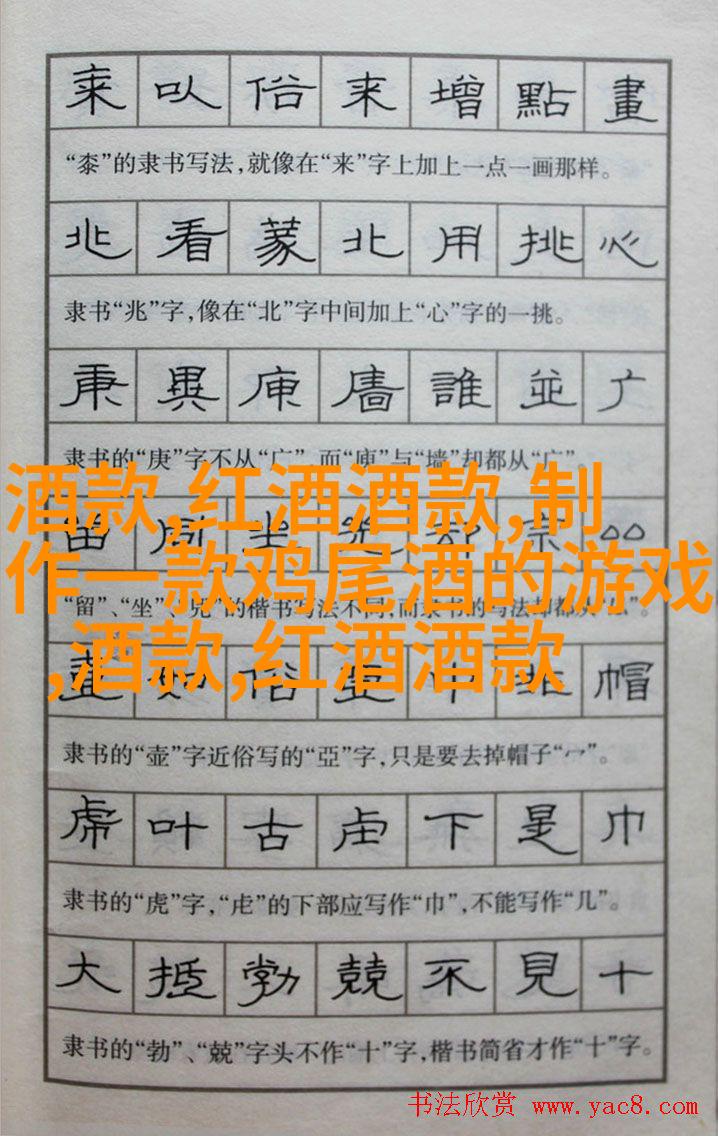 来以俗来增點畫
“桼”的隶书写法,就像在“来”字上加上一点一画那样。
兆看蒙北用挑心
隶书“兆”字,像在“北”字中间加上“心”字的一挑。
庚異庾廧誰並广
隶书的“庚”字不从“广”,而“庾”与“墙”却都从“广”。
酒款,红酒酒款,制
作一款鸡尾酒的游戏
,酒款,红酒酒款
留同坐
“留”、“坐”、的楷书写法不同,而隶书的写法却都从
壶如俗
帽
隶书的“壶”字近俗写的“亞”字,只是要去掉帽子“冖”。
虎叶古虍下是巾
隶书的“虎”字,“虍”的下部应写作“巾”,不能写作“几”。
大抵勃兢不見十
隶书的“勃”、“兢”字头不作“十”字,楷书简省才作“十”字。
书法欣赏 www.yac8.com